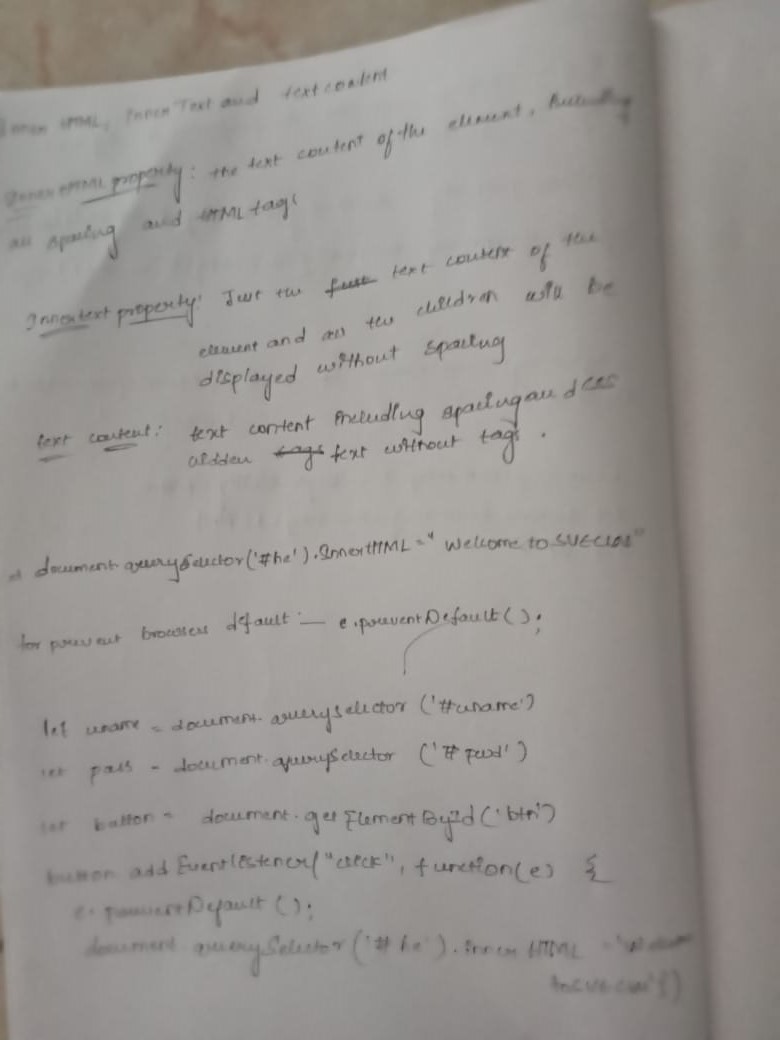 Inner HTML, Inner Text and text content
Inner HTML property: the text content of the element, Including
all spacing and HTML tags
Innertext property: Just the text content of the
element and all the children will be
displayed without spacing
text content: text content including spacing and CSS
hidden tags text without tags.
document.querySelector('#he').InnerHTML = "Welcome to
for prevent browsers default — e.preventDefault();
let uname = document.querySelector ('#uname')
let pass = document.querySelector ('#pwd')
let button = document.getElementById('btn')
button addEventListener("click", function(e) {
e.preventDefault();
document querySelector('#he').Inner HTML =